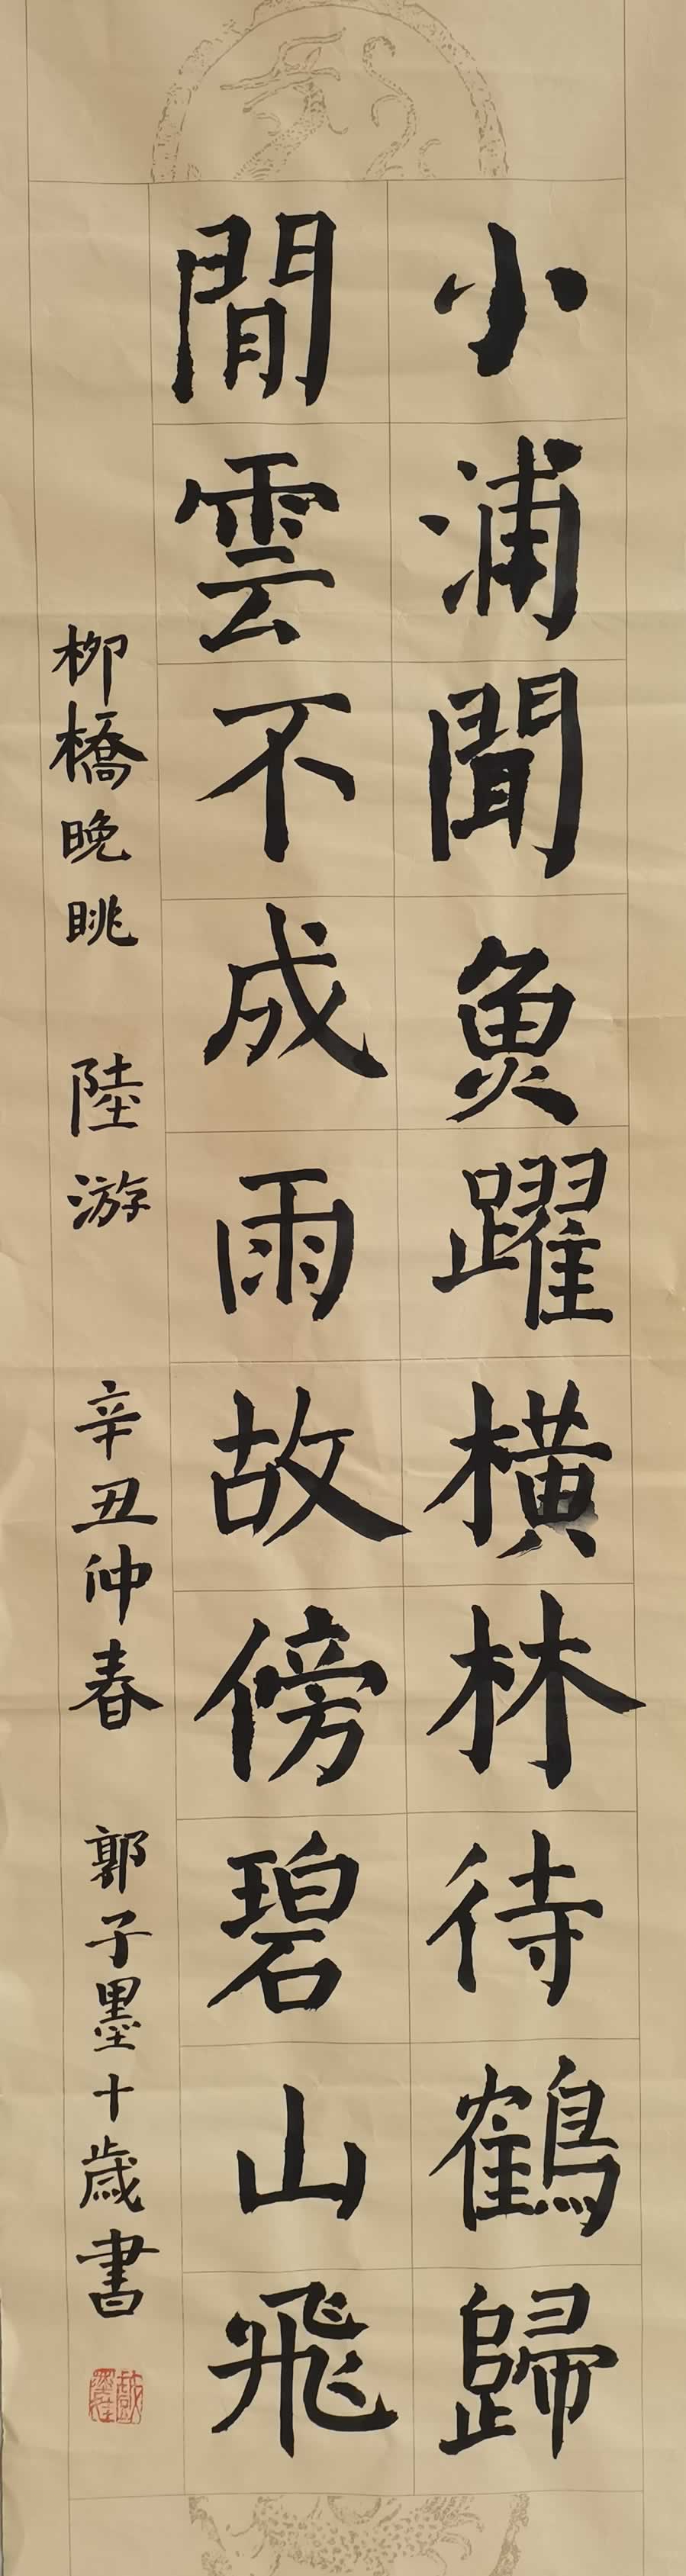 小浦聞魚躍橫林待鶴歸
閒雲不成雨故傍碧山飛
柳橋晚眺 陸游 辛丑仲春 郭子墨十歲書